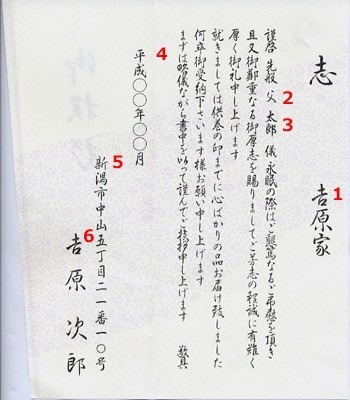 志
吉原家 1
謹啓 先般 父 太郎 儀 永眠の際はご懇篤なるご弔慰を頂き
2
3
且又御鄭重なる御厚志を賜りましてご芳志の程誠に有難く
厚く御礼申し上げます
就きましては供養の印までに心ばかりの品お届け致しました
何卒御受納下さいます様お願い申し上げます
まずは略儀ながら書中を以って謹んでご挨拶申し上げます 敬具
平成〇〇年〇〇月 4
新潟市中山五丁目二一番一〇号 5
吉原次郎 6
御挨拶